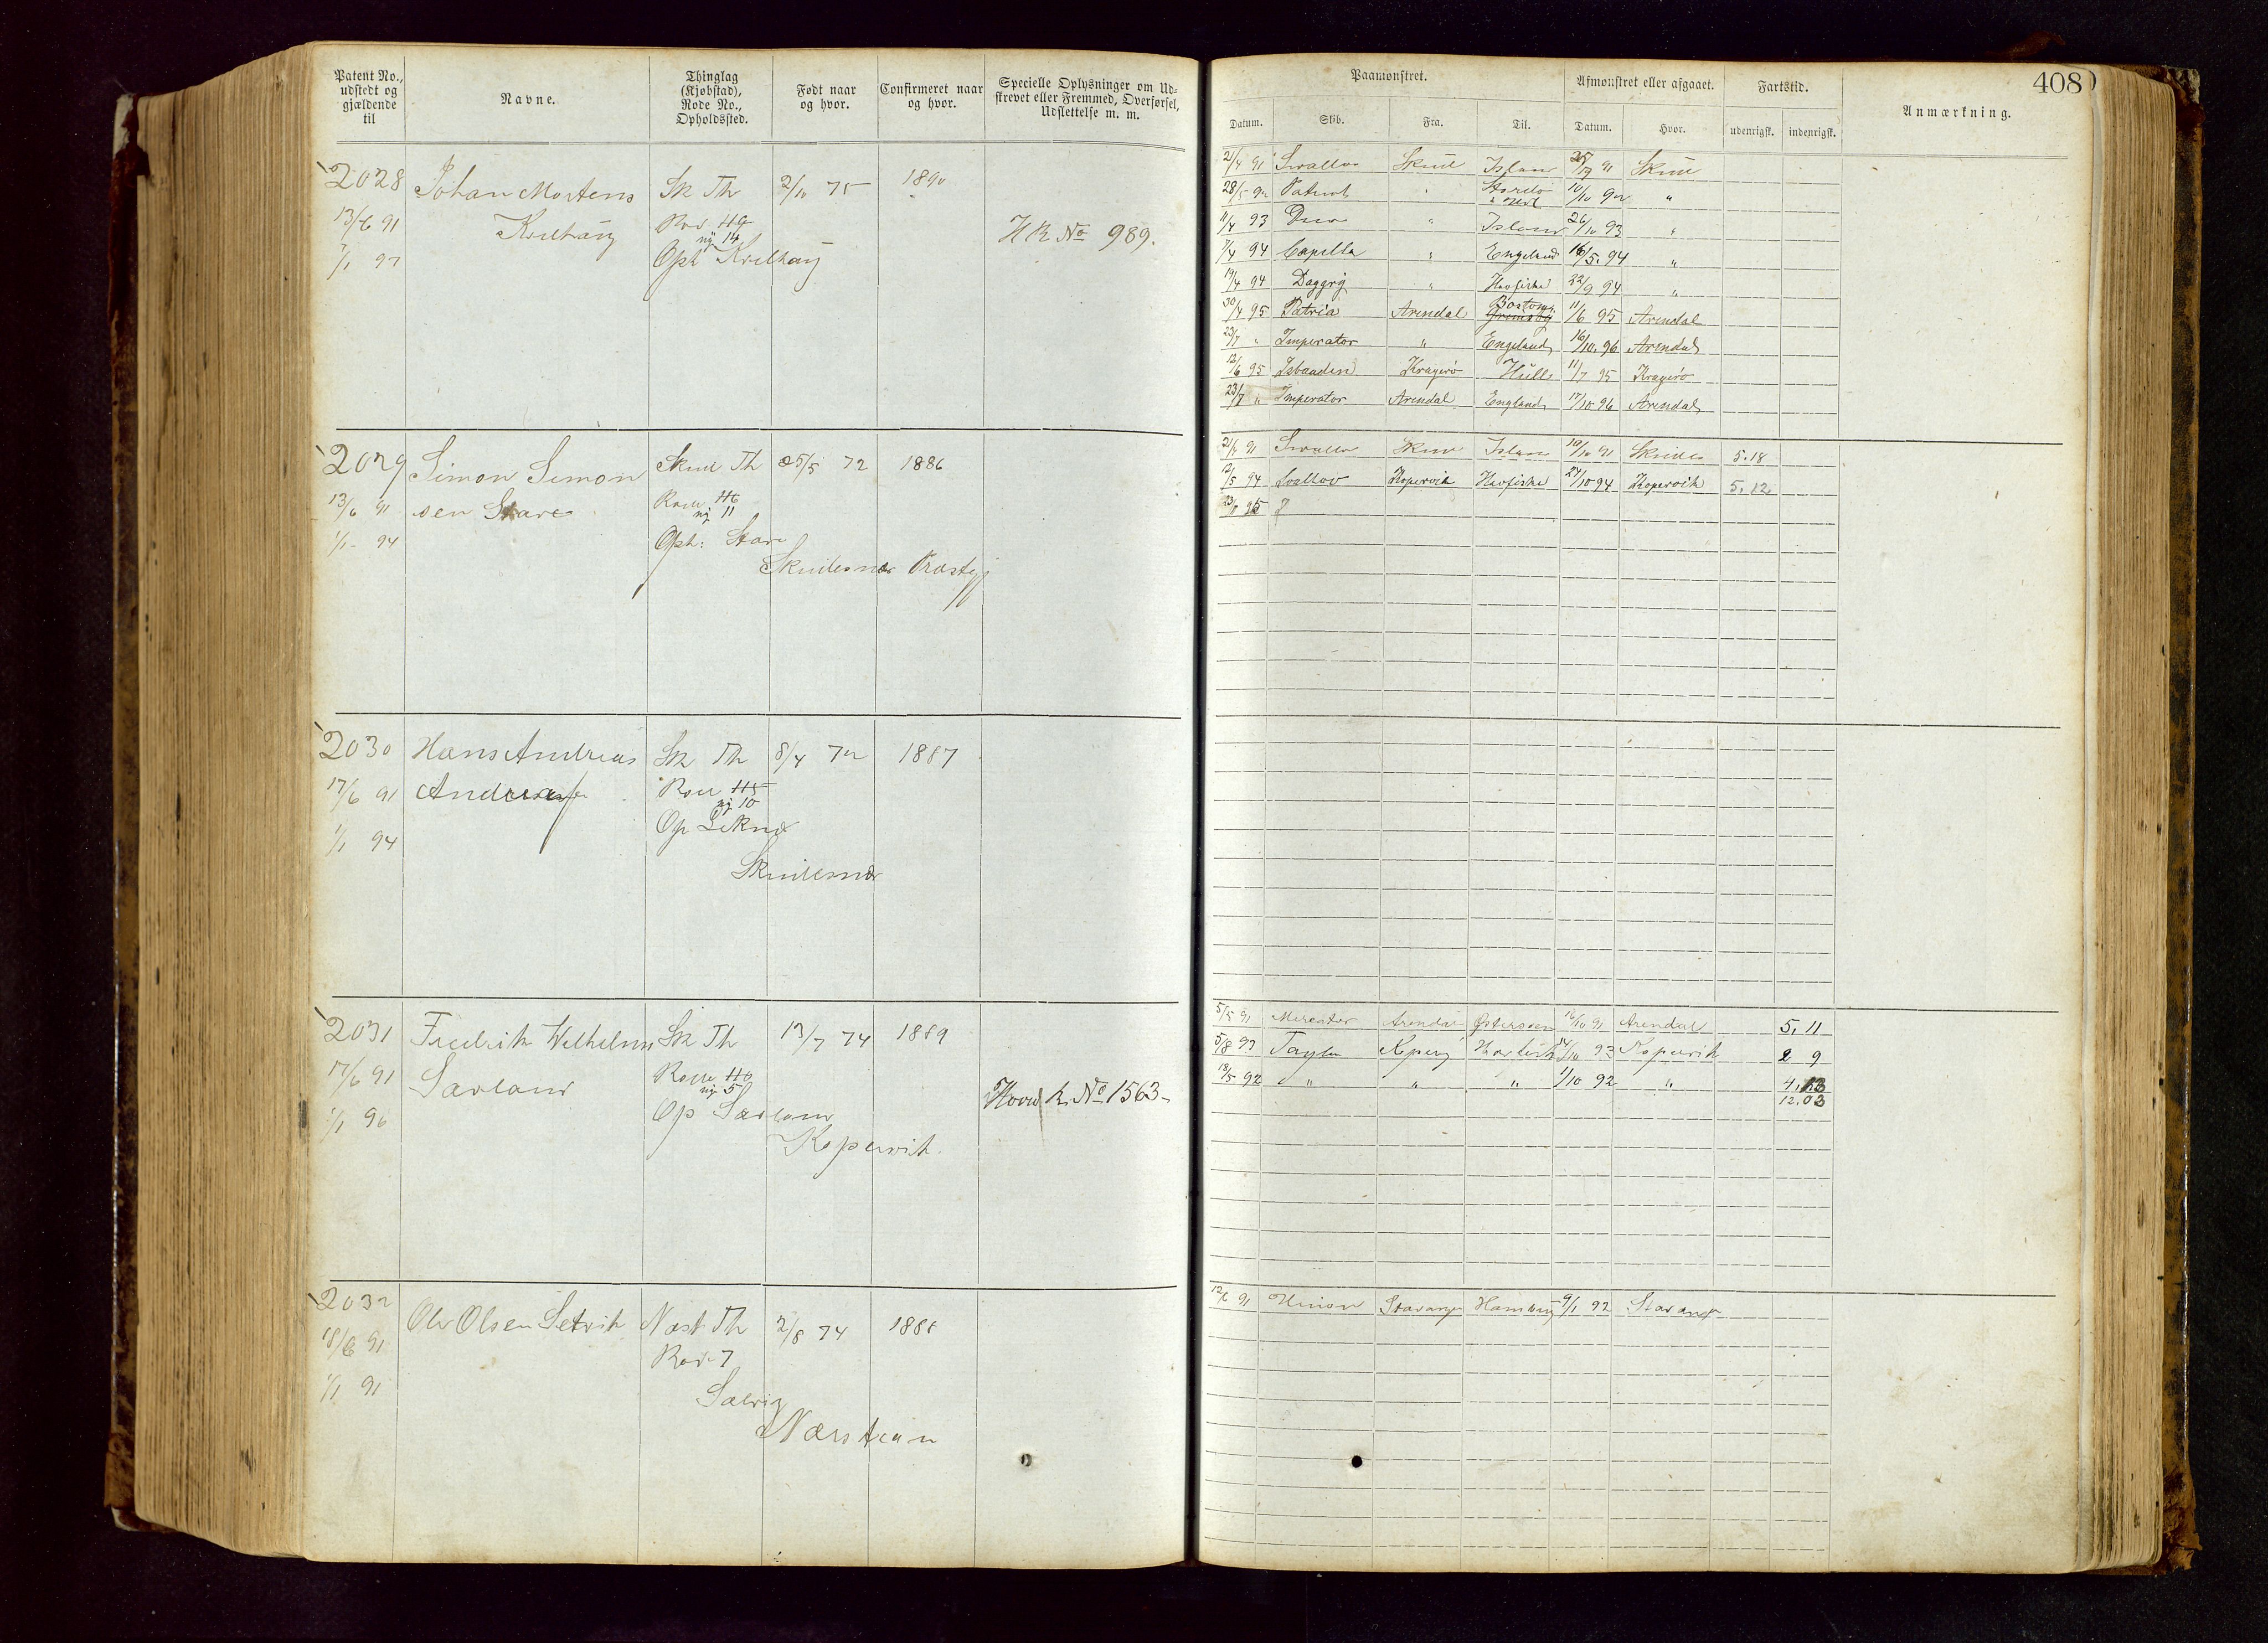 Patent No., udstedt og gjældende til
Navne.
Thinglag (Kjøbstad), Rode No., Opholdssted.
Født naar og hvor.
Confirmeret naar og hvor.
Specielle Oplysninger om Udskrevet eller Fremmed, Overførsel, Udslettelse m. m.
2028 Johan Mortens Sk Th 2/10 75 1890
13/6 91
Rod 49
ny 14
H R No 989.
1/1 97
Oph
2029 Simon Simon Skud Th 25/5 72 1886
13/6 91 sen Stare Rode 46
ny 11
1/1 94 Oph: Stare
Skudesnæs Præstgj
2030 Hans Andreas Sk Th 8/4 72 1887
17/6 91 Rode 45
ny 10
1/1 94 Op
Skudesnæs
2031 Fredrik Wilhelm Sk Th 13/7 74 1889
17/6 91 Sævland Rode 40
ny 5
Hoved R. No 1563
1/1 96 Op Sævland
Kopervik
2032 Ole Olsen Setvik Næst Th 2/8 74 1888
18/6 91 Rode 7
1/1 91
Nærstran
408
Paamønstret.
Afmønstret eller afgaaet.
Fartstid.
Anmærkning.
Datum. Skib. Fra. Til. Datum. Hvor. udenrigsk. indenrigsk.
21/4 91 Swallow Skude Islan 91 Skude
28/5 92 Patent " 10/10 92 "
11/4 93 " Island 26/10 93 "
7/4 94 Capella " Engeland 16/5. 94 "
19/4 94 Daggry " Havfiske 22/9 94 "
Boston
30/4 95 Patria Arendal Grimsby 11/6 95 Arendal
23/7 " Imperator " Engeland 16/10. 96 Arendal
12/6 95 Isbaaden Kragerø Hull 11/7 95 Kragerø
23/7 " Imperator Arendal England 17/10 96 Arendal
21/4 91 Swallow Skude Islan 10/10 91 Skudes 5.18
12/5 94 Svallow Kopervik Havfiske 24/10 94 Kopervik 5.12
5/5 91 Mercator Arendal Østersøen 16/10 91 Arendal 5. 11
5/8 93 Kperv Havfisk 14/10 93 Kopervik 2 9
18/5 92 " " " 1/10 92 " 4.13
12.03
12/6 91 Union Stavanger Hamburg 9/1 92 Stavanger